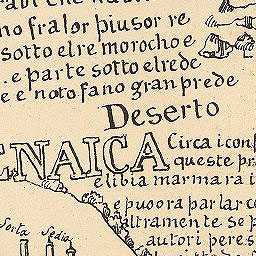 no fra lor piu sor re
sotto el re morocho e
e parte sotto el re de
e e noto fano gran prede
Deserto
ENAICA
Circa i conf
queste pr
e libia marmara i
e puo ora parlar co
ltramente se p
autori per es
Sorta Sedia